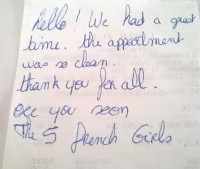 Hello! We had a great
time. the appartment
was so clean.
thank you for all.
See you soon
The 5 french Girls